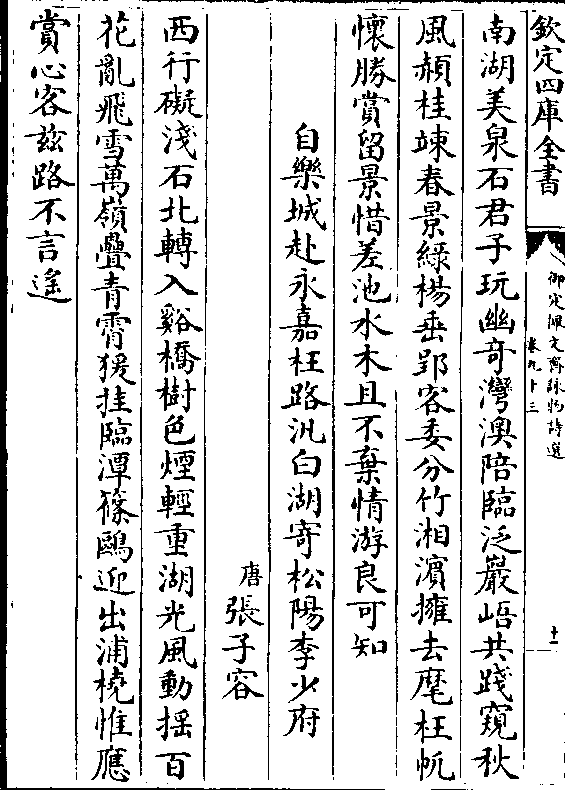 欽定四庫全書
御定佩文齋詠物詩選
卷九十三
十一
南湖美泉石君子玩幽奇灣澳陪臨泛巖峿共踐窺秋
風頳桂竦春景綠楊垂郢客委分竹湘濱擁去麾枉帆
懷勝賞留景惜差池水木且不棄情游良可知
自樂城赴永嘉枉路汎白湖寄松陽李少府
唐張子容
西行礙淺石北轉入谿橋樹色煙輕重湖光風動揺百
花亂飛雪萬嶺疊青霄猨挂臨潭篠鷗迎出浦橈惟應
賞心客兹路不言遙